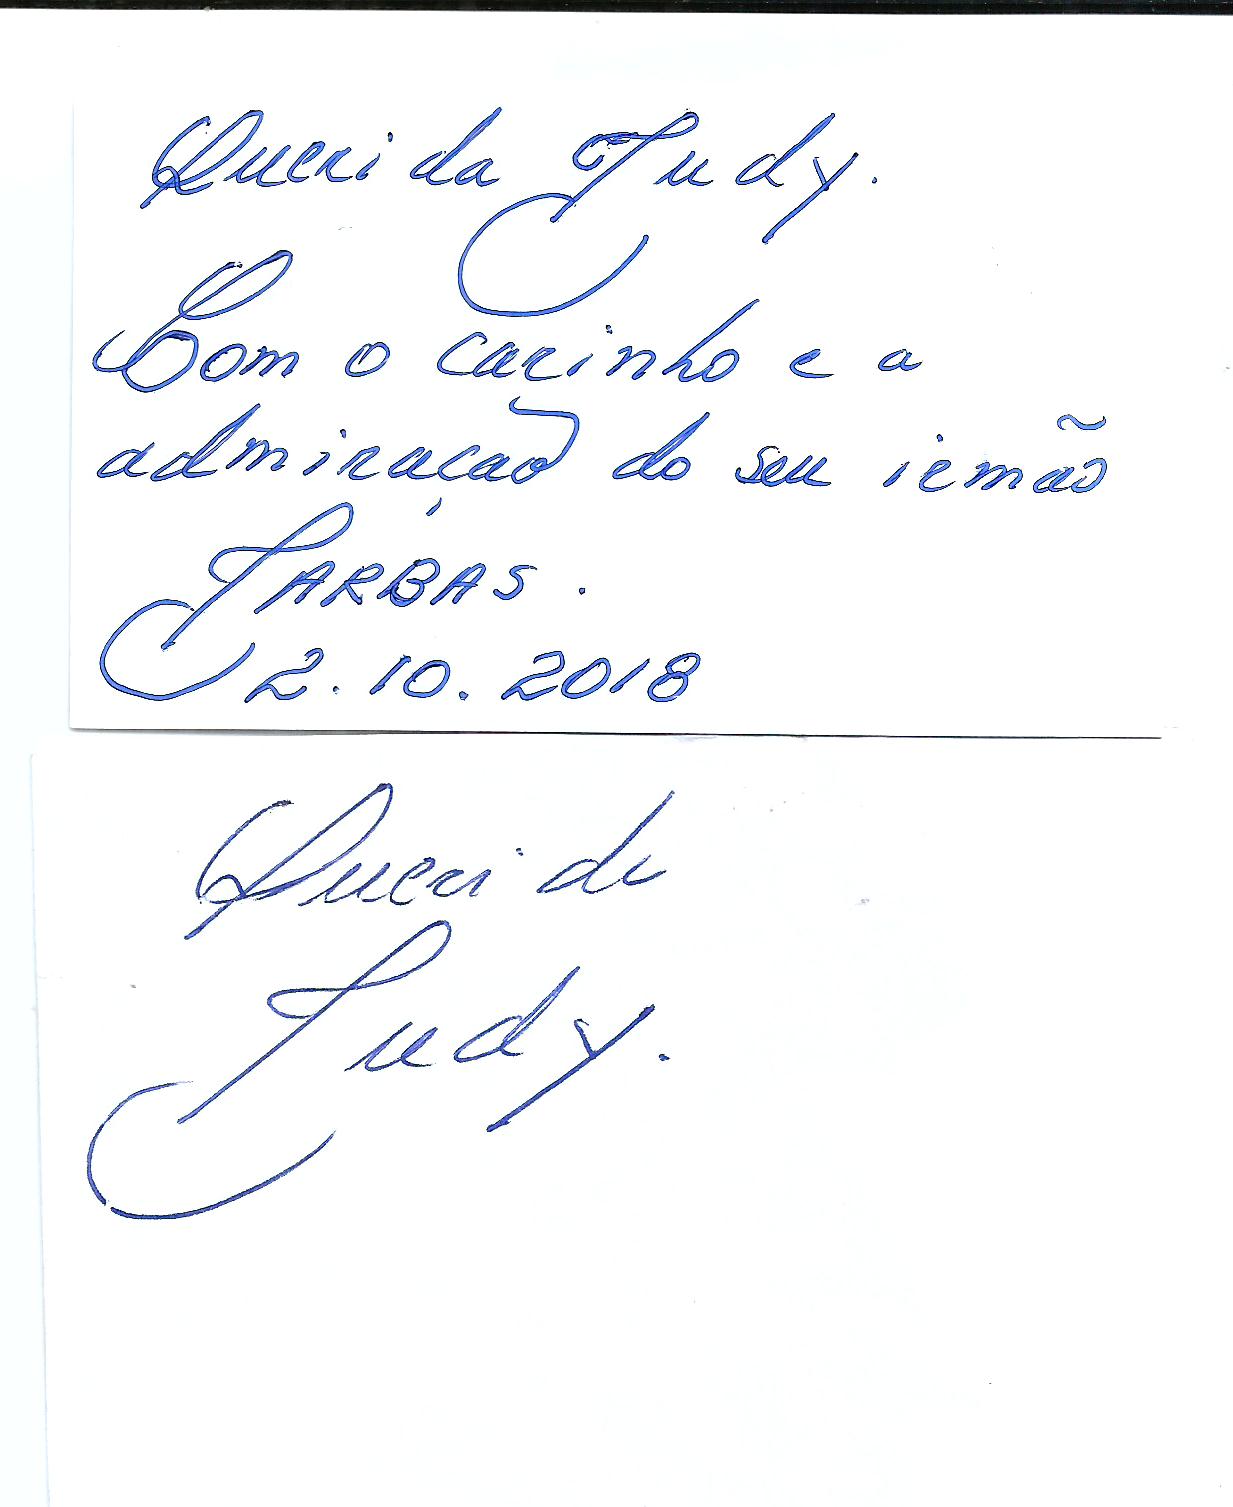 Querida Judy.
Com o carinho e a
admiração do seu irmão
JARBAS.
2.10.2018
Querida
Judy.